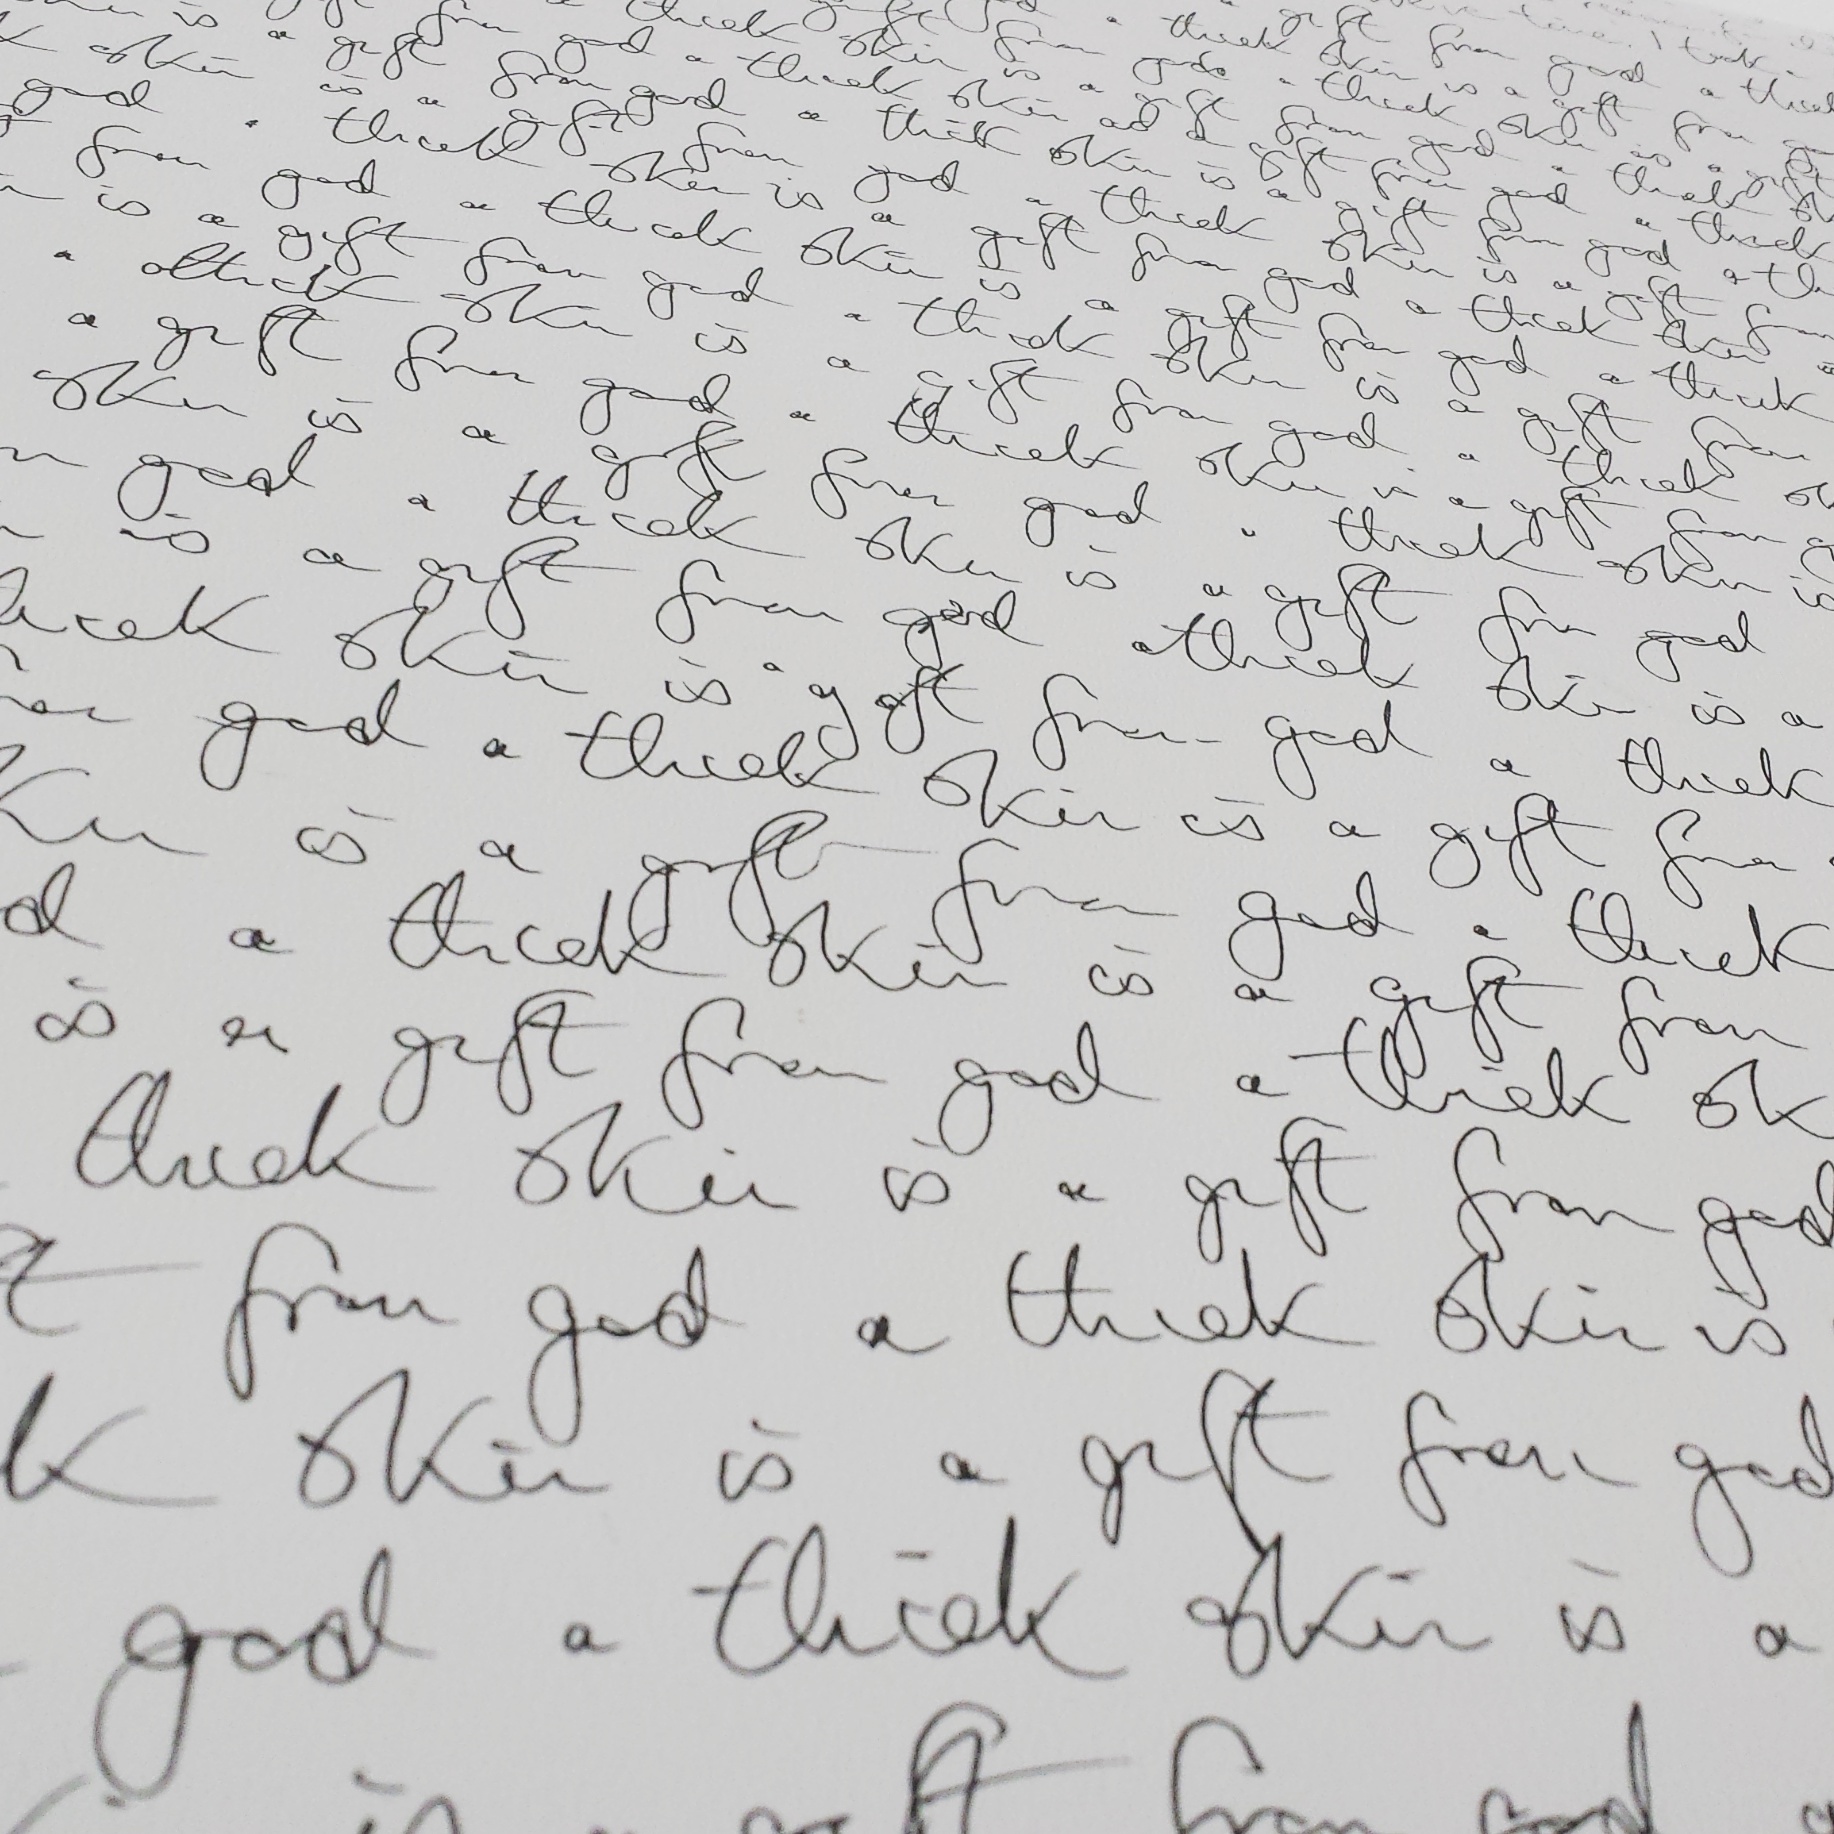 is a gift from god a thick skin is a gift from god a thick
skin is a gift from god a thick skin is a gift from god a thick
god a thick skin is a gift from god a thick skin is a gift from
from god a thick skin is a gift from god a thick skin
is a gift from god a thick skin is a gift from
a thick skin is a gift from god a thick
a gift from god a thick skin is a gift from
skin is a gift from god a thick skin is
god a thick skin is a gift from god
is a gift from god a thick skin is a
thick skin is a gift from god a thick
god a thick skin is a gift from
is a gift from god a thick
a thick skin is a gift from
is a gift from god a thick sk
thick skin is a gift from god
from god a thick skin is
skin is a gift from god
god a thick skin is a
is a gift from god